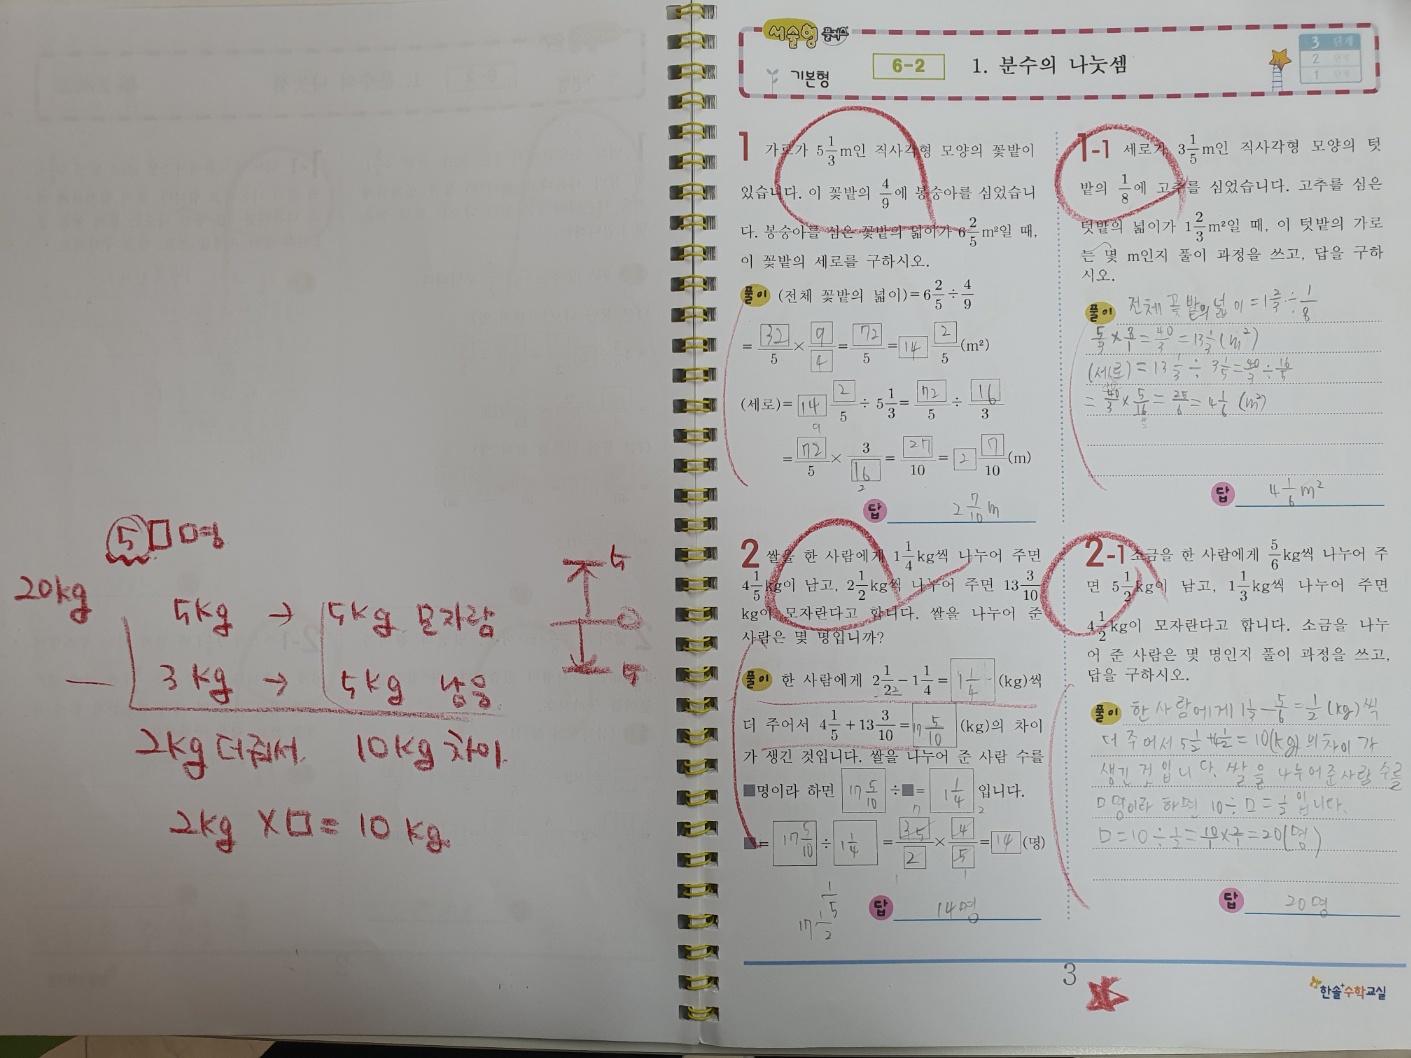 5□□명
20kg
5kg → 5kg 모자람
3kg → 5kg 남음
2kg 더줘서 10kg 차이
2kg × □ = 10 kg
5
0
5
서술형
기본형
6-2
1. 분수의 나눗셈
3 단계
2 단계
1 단계
1 가로가 5 1/3 m인 직사각형 모양의 꽃밭이
있습니다. 이 꽃밭의 4/9에 봉숭아를 심었습니
다. 봉숭아를 심은 꽃밭의 넓이가 6 2/5 m²일 때,
이 꽃밭의 세로를 구하시오.
풀이 (전체 꽃밭의 넓이)=6 2/5÷4/9
= 32/5 × 9/4 = 72/5 = 14 2/5 (m²)
(세로)= 14 2/5 ÷ 5 1/3 = 72/5 ÷ 16/3
9
= 72/5 × 3/16 = 27/10 = 2 7/10 (m)
2
답 2 7/10 m
2 쌀을 한 사람에게 1 1/4 kg씩 나누어 주면
4 1/5 kg이 남고, 2 1/2 kg씩 나누어 주면 13 3/10
kg이 모자란다고 합니다. 쌀을 나누어 준
사람은 몇 명입니까?
풀이 한 사람에게 2 1/2 − 1 1/4 = 1 1/4 (kg)씩
더 주어서 4 1/5 + 13 3/10 = 17 5/10 (kg)의 차이
가 생긴 것입니다. 쌀을 나누어 준 사람 수를
■명이라 하면 17 5/10 ÷■= 1 1/4 입니다.
7 2
■= 17 5/10 ÷ 1 1/4 = 35/2 × 4/5 = 14 (명)
1 1
1/5
17 1/2
답 14명
1-1 세로가 3 1/5 m인 직사각형 모양의 텃
밭의 1/8에 고추를 심었습니다. 고추를 심은
텃밭의 넓이가 1 2/3 m²일 때, 이 텃밭의 가로
는 몇 m인지 풀이 과정을 쓰고, 답을 구하
시오.
풀이 전체 꽃밭의 넓이 = 1 2/3 ÷ 1/8
5/3 × 8/1 = 40/3 = 13 1/3 (m²)
(세로) = 13 1/3 ÷ 3 1/5 = 40/3 ÷ 16/5
= 40/3 × 5/16 = 25/6 = 4 1/6 (m²)
답 4 1/6 m²
2-1 소금을 한 사람에게 5/6 kg씩 나누어 주
면 5 1/2 kg이 남고, 1 1/3 kg씩 나누어 주면
4 1/2 kg이 모자란다고 합니다. 소금을 나누
어 준 사람은 몇 명인지 풀이 과정을 쓰고,
답을 구하시오.
풀이 한 사람에게 1 1/3 − 5/6 = 1/2 (kg)씩
더 주어서 5 1/2 + 4 1/2 = 10(kg)의 차이가
생긴 것입니다. 쌀을 나누어준 사람 수를
□명이라 하면 10÷□=1/2입니다.
□=10÷1/2=10/1×2/1=20(명)
답 20명
3
한솔수학교실